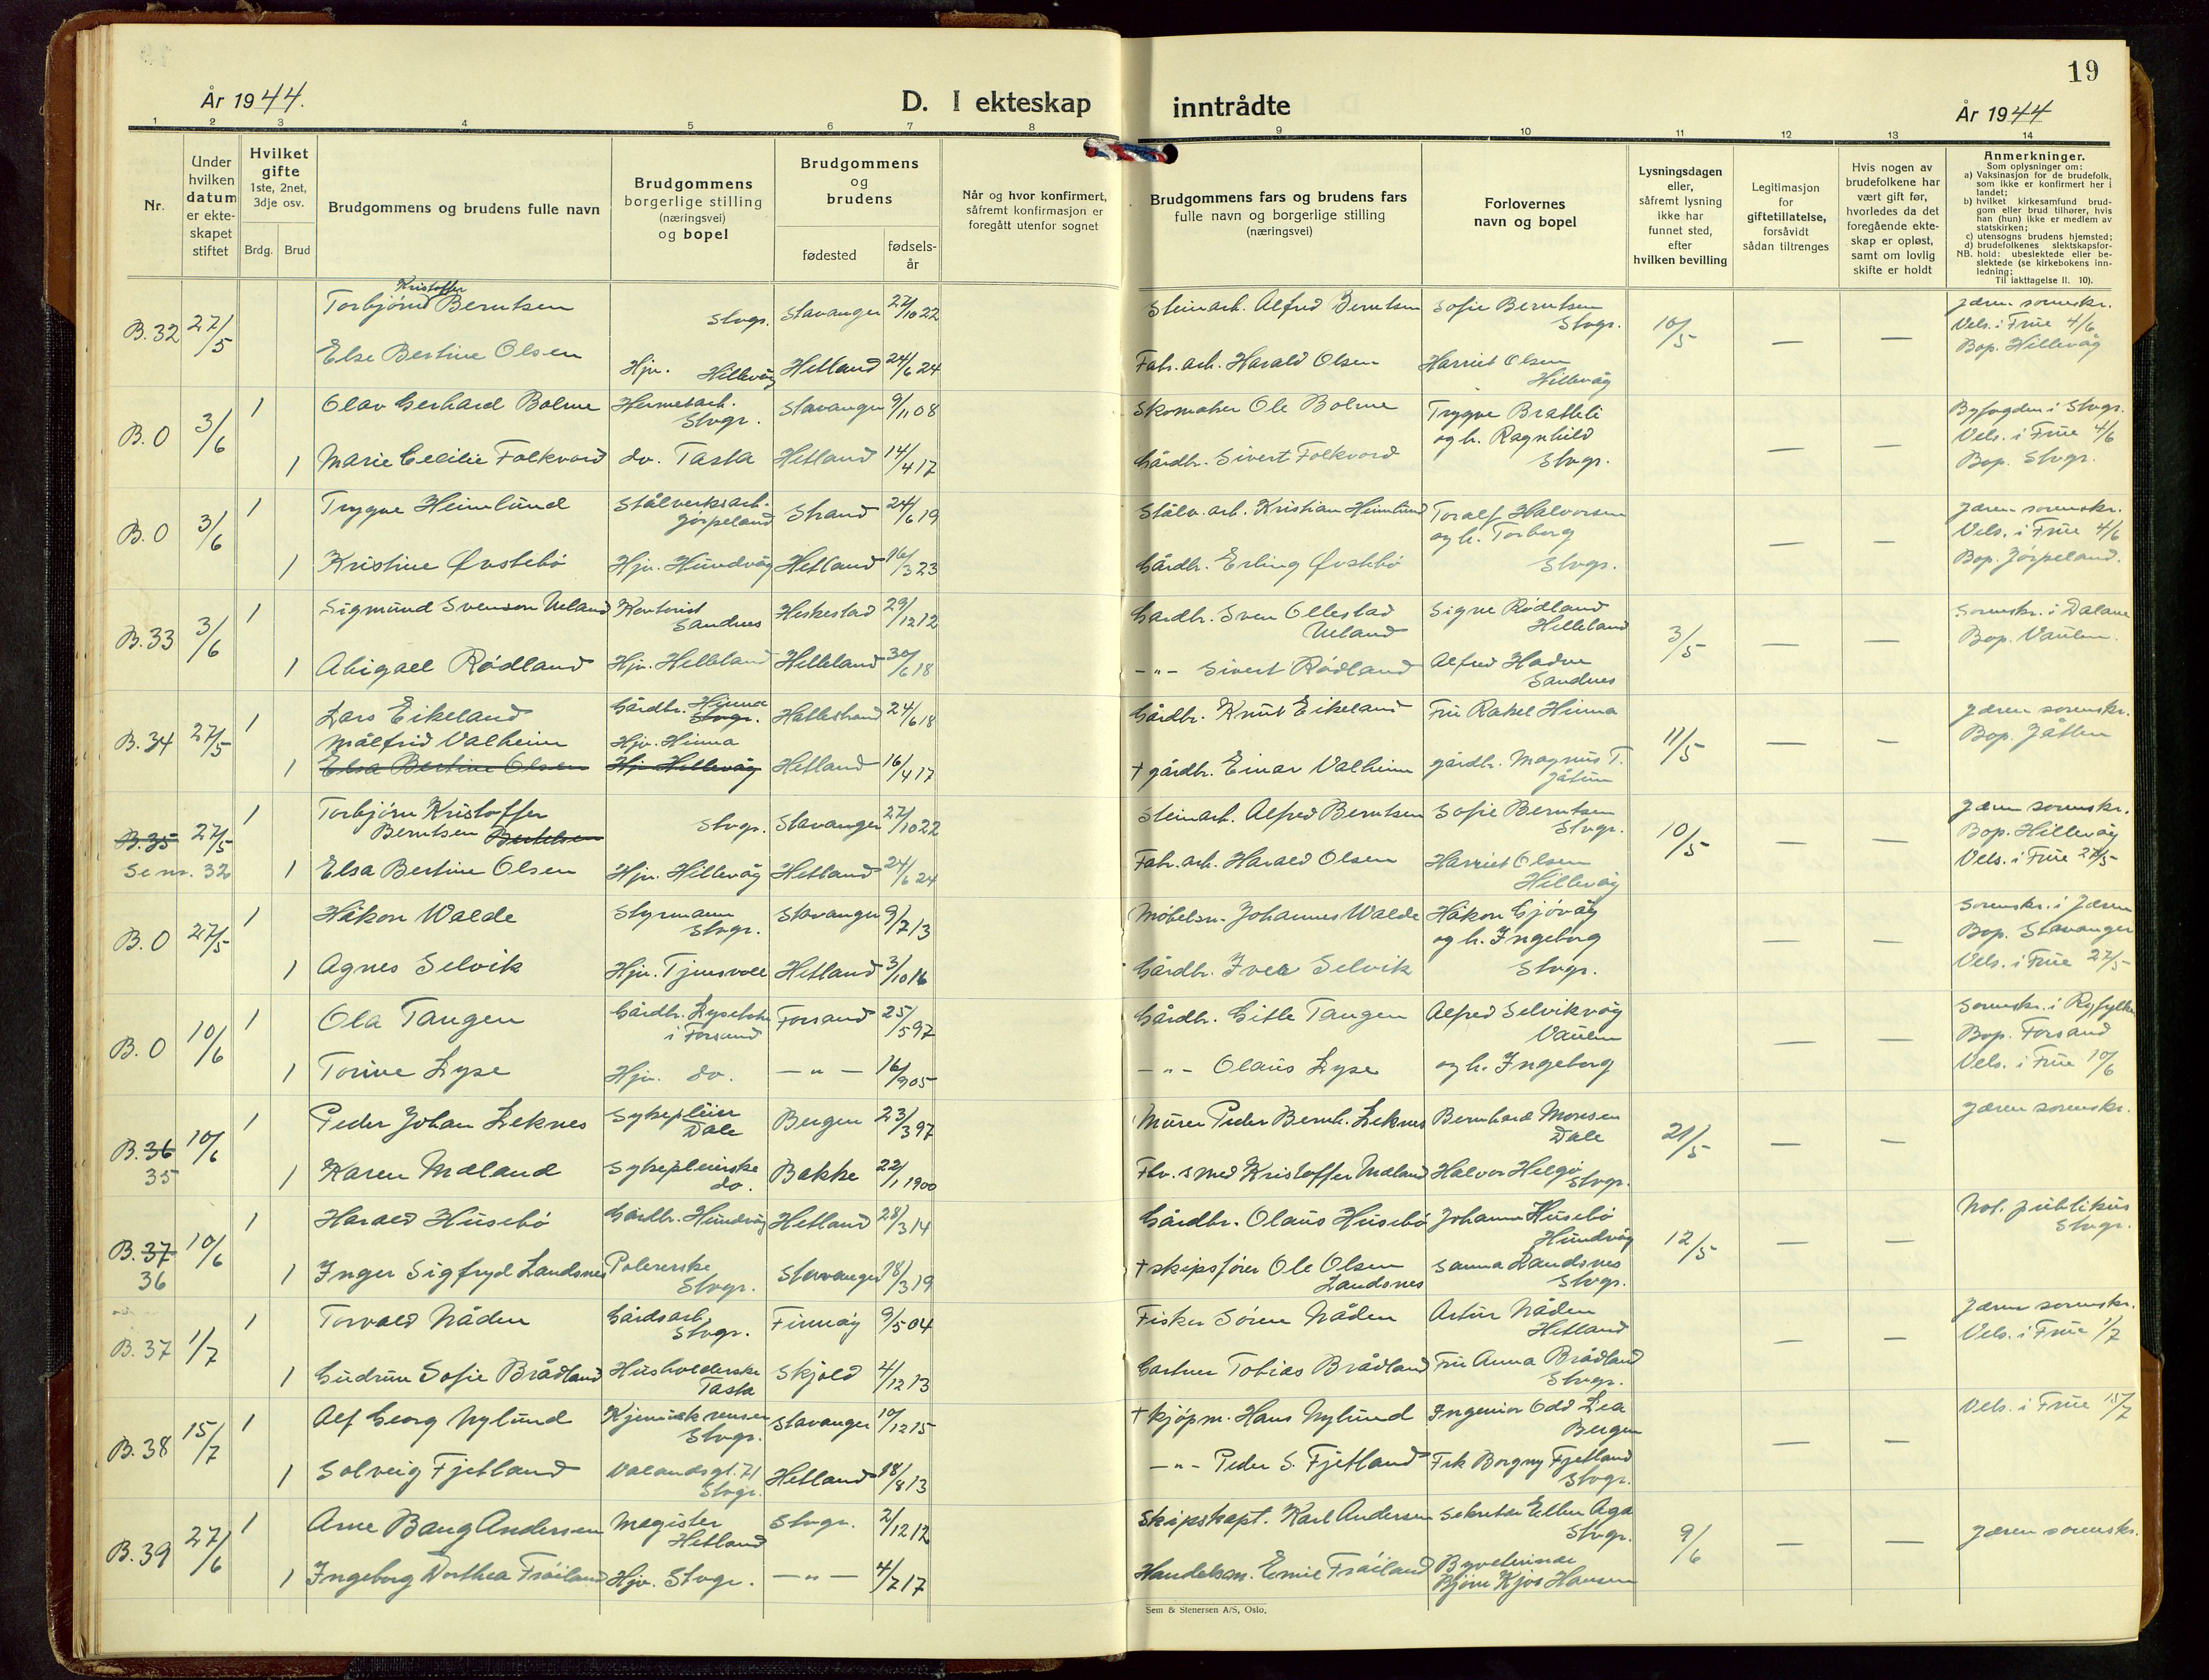 19
År 1944.
D. I ekteskap inntrådte
År 1944
1 2 3 4 5 6 7 8 9 10 11 12 13 14
Nr.
Under hvilken datum er ekteskapet stiftet
Hvilket gifte
1ste, 2net, 3dje osv.
Brdg. Brud
Brudgommens og brudens fulle navn
Brudgommens borgerlige stilling (næringsvei) og bopel
Brudgommens og brudens
fødested
fødselsår
Når og hvor konfirmert, såfremt konfirmasjon er foregått utenfor sognet
Brudgommens fars og brudens fars fulle navn og borgerlige stilling (næringsvei)
Forlovernes navn og bopel
Lysningsdagen eller, såfremt lysning ikke har funnet sted, efter hvilken bevilling
Legitimasjon for giftetillatelse, forsåvidt sådan tiltrenges
Hvis nogen av brudefolkene har vært gift før, hvorledes da det foregående ekteskap er opløst, samt om lovlig skifte er holdt
Anmerkninger.
Som oplysninger om:
a) Vaksinasjon for de brudefolk, som ikke er konfirmert her i landet;
b) hvilket kirkesamfund brudgom eller brud tilhører, hvis han (hun) ikke er medlem av statskirken;
c) utensogns brudens hjemsted;
d) brudefolkenes slektskapsforhold: ubeslektede eller beslektede (se kirkebokens innledning;
NB.
Til iakttagelse II. 10).
B. 32 27/5 Torbjørn Kristoffer Berntsen Stvgr. Stavanger 27/10 22 Steinarb. Alfred Berntsen Sofie Berntsen Stvgr. 10/5 — — Jæren sorenskr. Vels. i Frue 4/6 Bop. Hillevåg
Else Bertine Olsen Hjv. Hillevåg Hetland 24/6 24 Fabr. arb. Harald Olsen Harriet Olsen Hillevåg
B. 0 3/6 1 Olav Gerhard Bolme Hermetarb. Stvgr. Stavanger 9/11 08 Skomaker Ole Bolme Trygve Bratteli og h. Ragnhild Stvgr. — — Byfogden i Stvgr. Vels. i Frue 4/6 Bop. Stvgr.
1 Marie Cecilie Folkvord do. Tasta Hetland 14/4 17 Gårdbr. Sivert Folkvord
B. 0 3/6 1 Trygve Heimlund Stålverksarb. Jørpeland Strand 24/6 19 Stålv. arb. Kristian Heimlund Toralf Halvorsen og h. Torborg Stvgr. — — Jæren sorenskr. Vels. i Frue 4/6 Bop. Jørpeland.
1 Kristine Øvstebø Hjv. Hundvåg Hetland 16/3 23 Gårdbr. Erling Øvstebø
B. 33 3/6 1 Sigmund Svenson Ueland Kontorist Sandnes Heskestad 29/12 12 Gardbr. Sven Ollestad Ueland Signe Rødland Helleland 3/5 — — Sorenskr. i Dalane Bop. Vaulen.
1 Abigael Rødland Hjv. Helleland Helleland 30/6 18 –"– Sivert Rødland Alfred Hadne Sandnes
B. 34 27/5 1 Lars Eikeland Gårdbr. Hinna Stvgr. Hatlestrand 24/6 18 Gårdbr. Knut Eikeland Fru Rakel Hinna 11/5 — — Jæren sorenskr. Bop. Jåtten
Målfrid Valheim Hjv. Hinna
1 Elsa Bertine Olsen Hjv Hillevåg Hetland 16/4 17 † gårdbr. Einar Valheim gårdbr. Magnus T. Jåtun
B. 35 27/5 1 Torbjørn Kristoffer Berntsen Bertelsen Stvgr. Stavanger 27/10 22 Steinarb. Alfred Berntsen Sofie Berntsen Stvgr. 10/5 — — Jæren sorenskr. Bop. Hillevåg Vels. i Frue 27/5
Se nr. 32 1 Elsa Bertine Olsen Hjv. Hillevåg Hetland 24/6 24 Fabr. arb. Harald Olsen Harriet Olsen Hillevåg
B. 0 27/5 1 Håkon Walde Styrmann Stvgr. Stavanger 9/7 13 Møbelsn. Johannes Walde Håkon Gjøvåg og h. Ingeborg Stvgr. — — Sorenskr. i Jæren Bop. Stavanger Vels. i Frue 27/5
1 Agnes Selvik Hjv. Tjensvoll Hetland 3/10 16 Gårdbr. Iver Selvik
B. 0 10/6 1 Ola Tangen Gårdbr. Lysebotn i Forsand Forsand 25/5 97 Gårdbr. Gitle Tangen Alfred Selvikvåg Vaulen — — Sorenskr. i Ryfylke Bop. Forsand Vels. i Frue 10/6
1 Torine Lyse Hjv. do. —"— 16/9 05 –"– Olaus Lyse og h. Ingeborg
B. 36 35 10/6 1 Peder Johan Leknes Sykepleier Dale Bergen 23/3 97 Murer Peder Bernh. Leknes Bernhard Monsen Dale 21/5 — — Jæren sorenskr.
1 Karen Mæland Sykepleierske do. Bakke 22/1 1900 Fhv. smed Kristoffer Mæland Halvor Helgø Stvgr.
B. 37 36 10/6 1 Harald Husebø Gårdbr. Hundvåg Hetland 28/3 14 Gårdbr. Olaus Husebø Johanna Husebø Hundvåg 12/5 — — Not. publikus Stvgr.
1 Inger Sigfryd Landsnes Polererske Stvgr. Stavanger 18/3 19 † skipsfører Ole Olsen Landsnes Sanna Landsnes Stvgr.
B. 37 1/7 1 Torvald Nåden Gårdsarb. Stvgr. Finnøy 9/5 04 Fisker Søren Nåden Artur Nåden Hetland — — Jæren sorenskr. Vels. i Frue 1/7
1 Gudrun Sofie Brådland Husholderske Tasta Skjold 4/12 13 Gartner Tobias Brådland Fru Anna Brådland Stvgr.
B. 38 15/7 1 Alf Georg Nylund Kjemiskrenser Stvgr. Stavanger 10/12 15 † kjøpm. Hans Nylund Ingeniør Odd Lea Bergen — — Vels. i Frue 15/7
1 Solveig Fjetland Valandsgt. 71 Stvgr. Hetland 18/8 13 –"– Peder S. Fjetland Frk Borgny Fjetland Stvgr.
B. 39 27/6 1 Arne Bang Andersen Magister Hetland Stvgr. 2/12 12 Skipskapt. Karl Andersen Sekretær Ellen Aga Stvgr. 9/6 — — Jæren sorenskr.
1 Ingeborg Dorthea Frøiland Hjv. Stvgr. —"— 4/7 17 Handelsm. Emil Frøiland Byveterinær Bjørn Kjos Hansen
Sem & Stenersen A/S, Oslo.